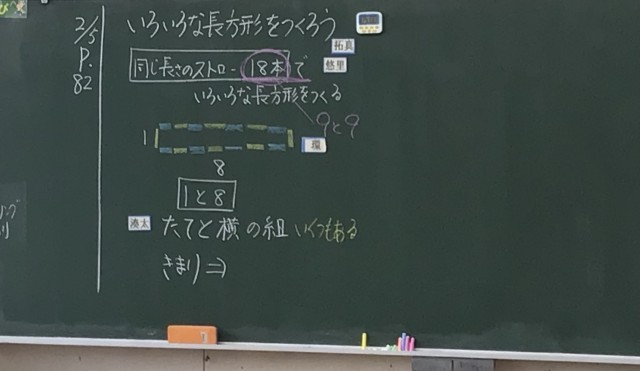 2/5
P.
82
いろいろな長方形をつくろう
拓真
同じ長さのストロー18本で
悠里
いろいろな長方形をつくる
9と9
1
環
8
1と8
湊太
たてと横の組 いくつもある
きまり⇒